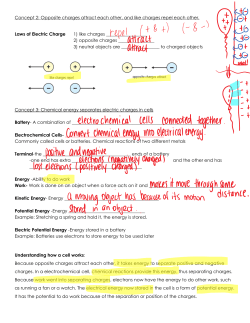 Concept 2: Opposite charges attract each other, and like charges repel each other.
Laws of Electric Charge
1) like charges repel (+ & +) (- & -)
2) opposite charges attract
3) neutral objects are attract to charged objects
like charges repel
opposite charges attract
neutral
Concept 3: Chemical energy separates electric charges in cells
Battery- A combination of electrochemical cells connected together
Electrochemical Cells- Convert chemical energy into electrical energy
Commonly called cells or batteries. Chemical reaction of two different metals
Terminal the positive and negative ends of a battery
-one end has extra electrons (negatively charged) and the other end has
lost electrons (positively charged)
Energy -Ability to do work
Work- Work is done on an object when a force acts on it and makes it move through some distance.
Kinetic Energy- Energy a moving object has because of its motion
Potential Energy -Energy stored in an object
Example: Stretching a spring and hold it, the energy is stored.
Electric Potential Energy -Energy stored in a battery
Example: Batteries use electrons to store energy to be used later
Understanding how a cell works:
Because opposite charges attract each other, it takes energy to separate positive and negative
charges. In a electrochemical cell, chemical reactions provide this energy, thus separating charges.
Because work went into separating charges, electrons now have the energy to do other work, such
as running a fan or a watch. The electrical energy now stored in the cell is a form of potential energy.
It has the potential to do work because of the separation or the position of the charges.